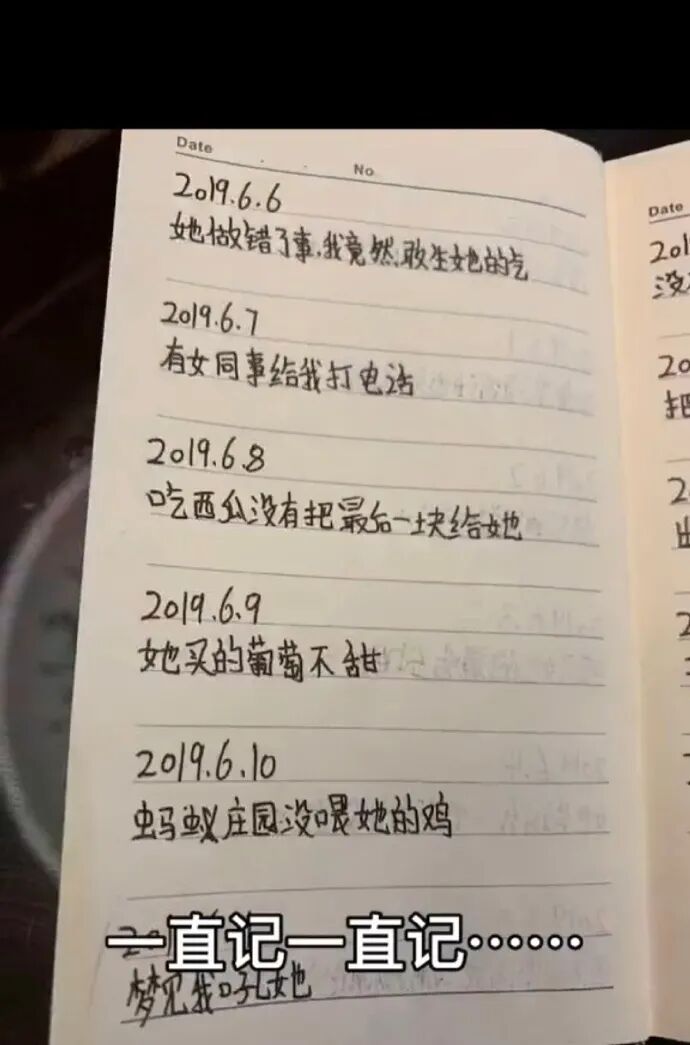 Date No
2019.6.6
她做错了事,我竟然敢生她的气
2019.6.7
有女同事给我打电话
2019.6.8
吃西瓜没有把最后一块给她
2019.6.9
她买的葡萄不甜
2019.6.10
蚂蚁庄园没喂她的鸡
一直记一直记……
梦见我吼她
Date
201
没
20
把
2
出
2
2